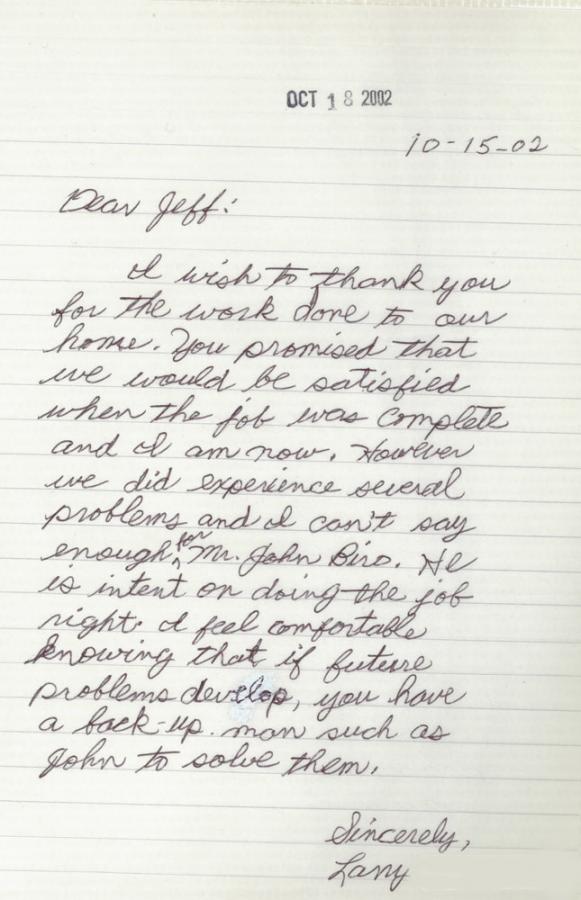 OCT 18 2002
10-15-02
Dear Jeff:
I wish to thank you
for the work done to our
home. You promised that
we would be satisfied
when the job was complete
and I am now. However
we did experience several
problems and I can't say
enough for Mr. John Biro. He
is intent on doing the job
right. I feel comfortable
knowing that if future
problems develop, you have
a back-up man such as
John to solve them.
Sincerely,
Larry